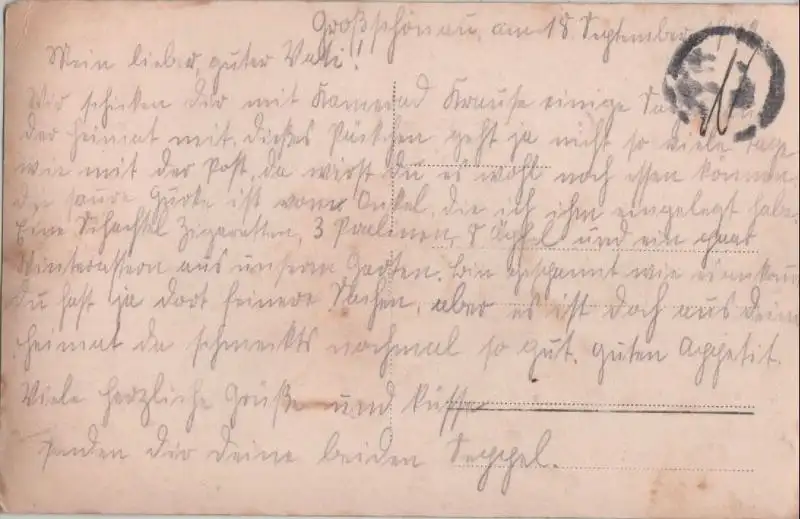 Großschönau, am 18. September
Mein lieber, guter Vati!
Wir schicken dir mit Kamerad Krause einige
der Heimat mit. dieses Päckchen geht ja nicht so viele Tage
wie mit der Post, da wirst du es wohl noch essen können.
die saure Gurke ist vom Onkel, die ich ihm eingelegt habe.
Eine Schachtel Zigaretten, 3 Pralinen, 8 Äpfel und ein paar
aus unserm Garten. Bin gespannt wie
du hast ja dort feinere Sachen, aber es ist doch aus deine
Heimat da schmeckts nochmal so gut. Guten Appetit.
Viele herzliche Grüße und Küsse
senden dir deine beiden Seppel.